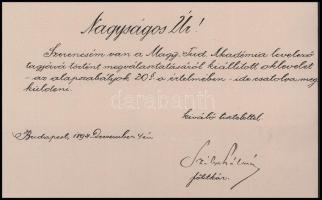 Nagyságos Úr!
Szerencsém van a Magy. Tud. Akadémia levelező
tagjává történt megválasztatásáról kiállított oklevelet
- az alapszabályok 20. § a értelmében - ide csatolva meg-
küldeni.
kiváló tisztelettel.
Budapest, 1894. December 4én
Szily Kálmán
főtitkár.